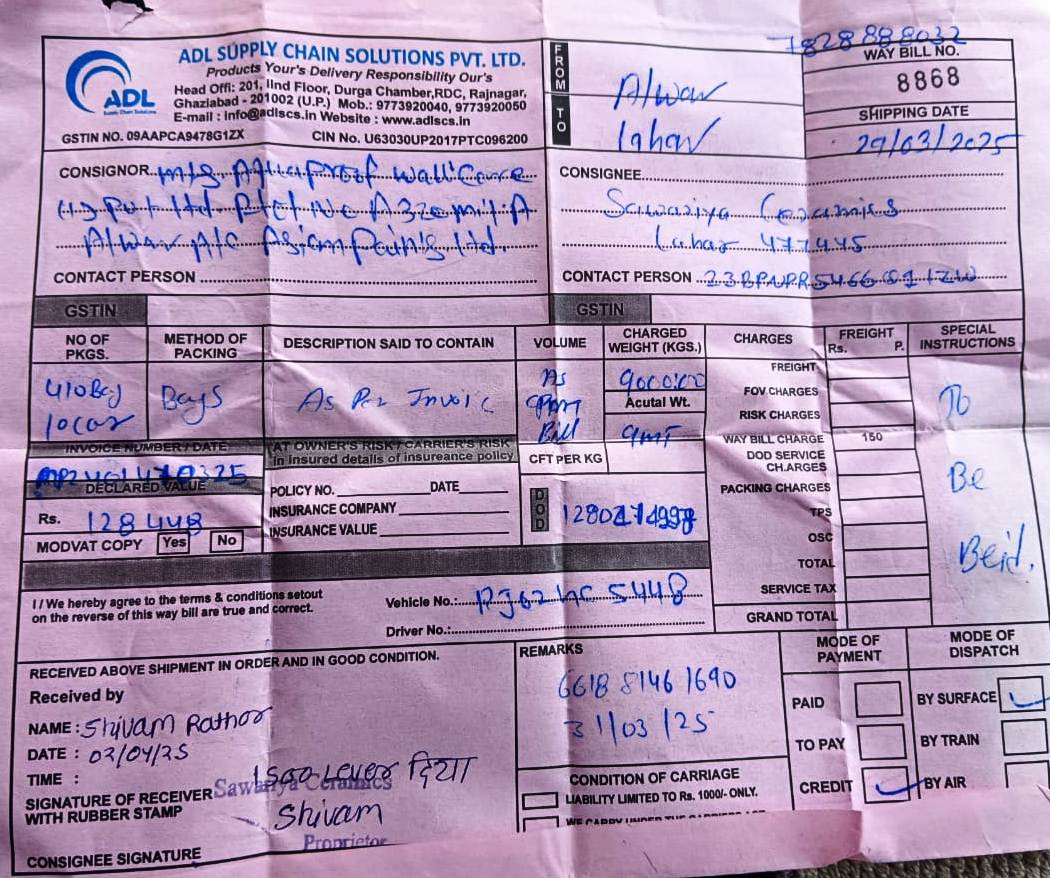 7828888032
ADL SUPPLY CHAIN SOLUTIONS PVT. LTD.
Products Your's Delivery Responsibility Our's
Head Offi: 201, IInd Floor, Durga Chamber,RDC, Rajnagar,
Ghaziabad - 201002 (U.P.) Mob.: 9773920040, 9773920050
E-mail : info@adlscs.in Website : www.adlscs.in
GSTIN NO. 09AAPCA9478G1ZX CIN No. U63030UP2017PTC096200
ADL
Supply Chain Solutions
FROM Alwar
TO lahar
WAY BILL NO.
8868
SHIPPING DATE
29/03/2025
CONSIGNOR
Proof Wall Care
Alwar A/C Asian Paints Ltd.
CONTACT PERSON
CONSIGNEE
Sawariya Ceramics
Lahar 477445
CONTACT PERSON
GSTIN GSTIN
NO OF PKGS. METHOD OF PACKING DESCRIPTION SAID TO CONTAIN VOLUME CHARGED WEIGHT (KGS.) CHARGES FREIGHT Rs. P. SPECIAL INSTRUCTIONS
410 Bag Bags As Per Invoic As
Bill 9000.00
Acutal Wt.
9mt
FREIGHT
FOV CHARGES
RISK CHARGES
WAY BILL CHARGE 150
DOD SERVICE CHARGES
PACKING CHARGES
TPS
OSC
TOTAL
SERVICE TAX
GRAND TOTAL
To
Be
Beid.
INVOICE NUMBER / DATE
AT OWNER'S RISK / CARRIER'S RISK
in insured details of insureance policy
CFT PER KG
DECLARED VALUE
Rs. 128448
MODVAT COPY Yes No
POLICY NO. DATE
INSURANCE COMPANY
INSURANCE VALUE
DOD
I / We hereby agree to the terms & conditions setout
on the reverse of this way bill are true and correct.
Vehicle No.: RJ02 5448
Driver No.:
RECEIVED ABOVE SHIPMENT IN ORDER AND IN GOOD CONDITION.
Received by
NAME : Shivam Rathor
DATE : 02/04/25
TIME :
1500 Lever दिया
SIGNATURE OF RECEIVER
WITH RUBBER STAMP
Sawariya Ceramics
Shivam
Proprietor
CONSIGNEE SIGNATURE
REMARKS
6618 8146 1690
31/03/25
CONDITION OF CARRIAGE
LIABILITY LIMITED TO Rs. 1000/- ONLY.
MODE OF PAYMENT
PAID
TO PAY
CREDIT
MODE OF DISPATCH
BY SURFACE
BY TRAIN
BY AIR